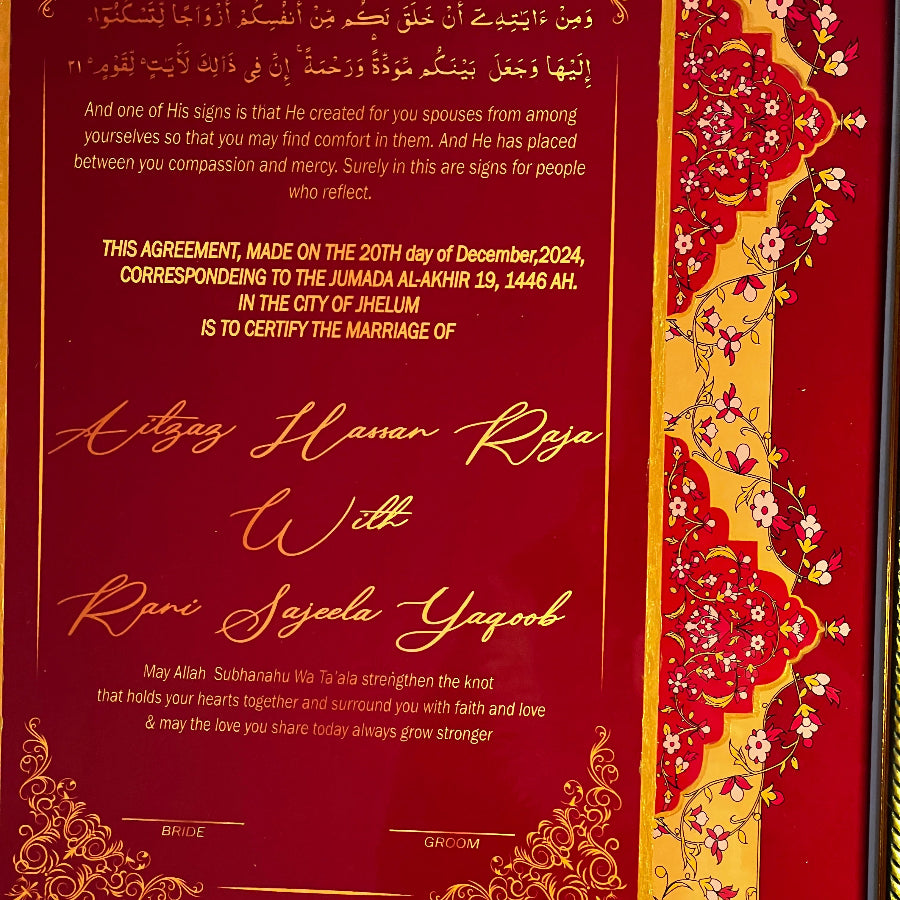 وَمِنْ ءَايَـٰتِهِۦٓ أَنْ خَلَقَ لَكُم مِّنْ أَنفُسِكُمْ أَزْوَٰجًا لِّتَسْكُنُوٓا۟
إِلَيْهَا وَجَعَلَ بَيْنَكُم مَّوَدَّةً وَرَحْمَةً ۚ إِنَّ فِى ذَٰلِكَ لَـَٔايَـٰتٍ لِّقَوْمٍ ٢١
And one of His signs is that He created for you spouses from among
yourselves so that you may find comfort in them. And He has placed
between you compassion and mercy. Surely in this are signs for people
who reflect.
THIS AGREEMENT, MADE ON THE 20TH day of December,2024,
CORRESPONDEING TO THE JUMADA AL-AKHIR 19, 1446 AH.
IN THE CITY OF JHELUM
IS TO CERTIFY THE MARRIAGE OF
Aitzaz Hassan Raja
With
Rani Sajeela Yaqoob
May Allah Subhanahu Wa Ta'ala strengthen the knot
that holds your hearts together and surround you with faith and love
& may the love you share today always grow stronger
BRIDE
GROOM